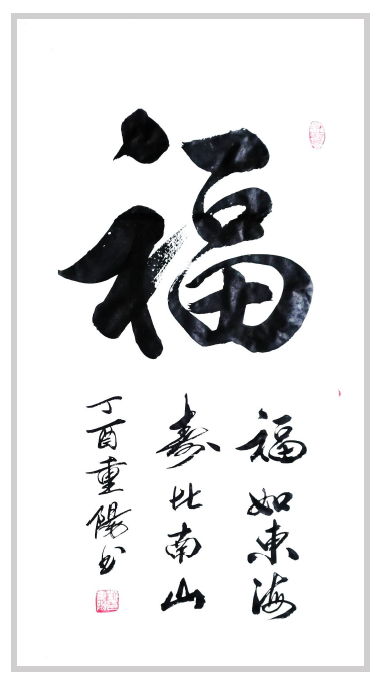 福
福如東海
壽比南山
丁酉重陽書